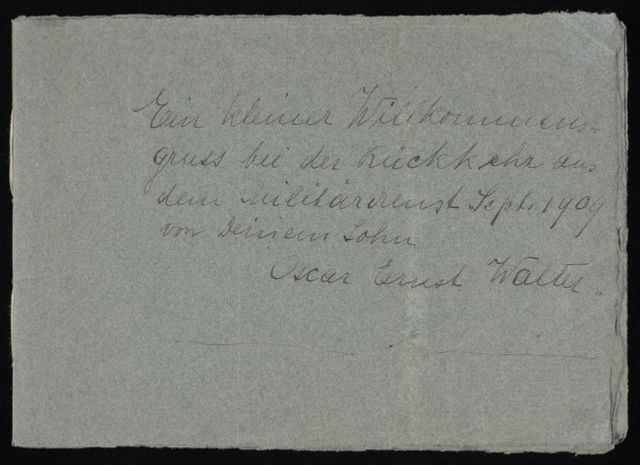 Ein kleiner Willkommens-
gruss bei der Rückkehr aus
dem Militärdienst Sept. 1909
von Deinem Sohn
Oscar Ernst Walter.